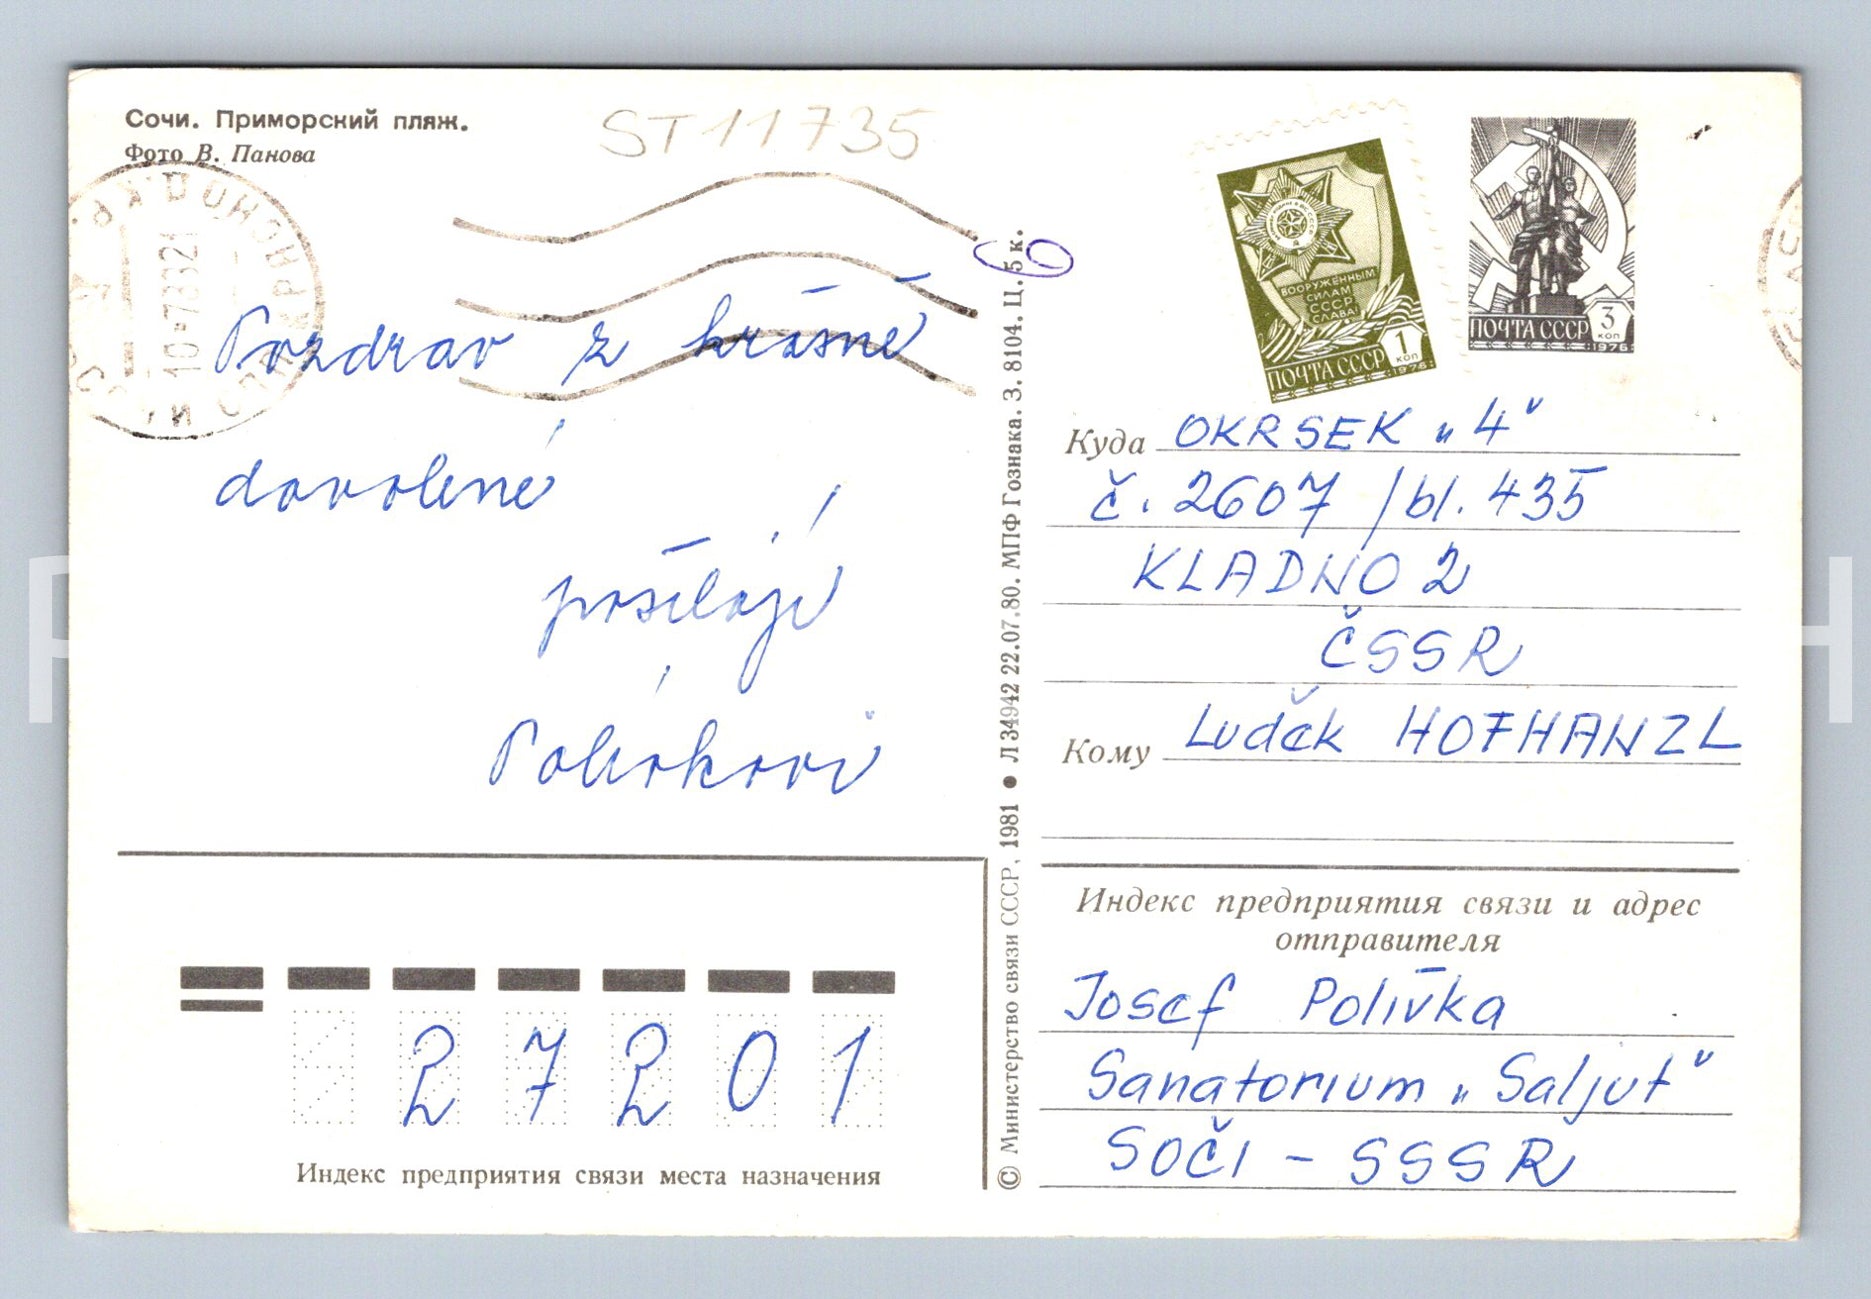 Сочи. Приморский пляж.
Фото В. Панова
ST 11 735
10-7 8321
Pozdrav z krásné
dovolené
posílají
Polívkovi
ВООРУЖЕННЫМ
СИЛАМ
СССР
СЛАВА!
1
КОП
ПОЧТА СССР
1976
ПОЧТА СССР
3
КОП
1976
6
Куда OKRSEK „4"
č. 2607 / bl. 435
KLADNO 2
ČSSR
Кому Luděk HOFHANZL
Индекс предприятия связи и адрес
отправителя
Josef Polívka
Sanatorium „Saljut"
SOČI - SSSR
27201
Индекс предприятия связи места назначения
© Министерство связи СССР, 1981 • Л 34942 22.07.80. МПФ Гознака. З. 8104. Ц. 5 к.